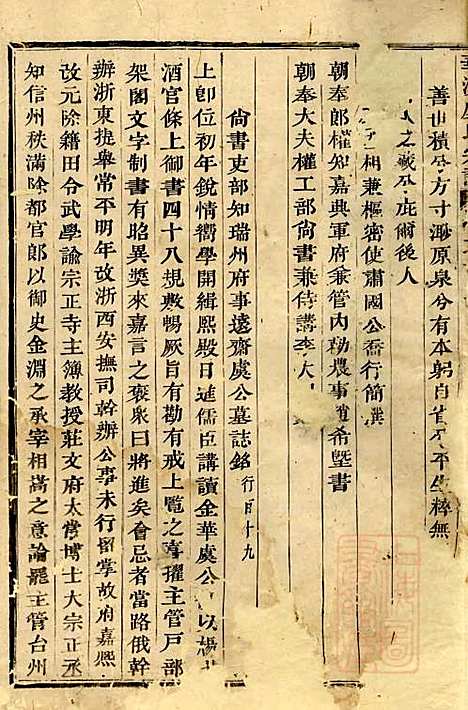 善由積兮方寸瀰原泉兮有本躬自省兮平生粹無
之藏兮庇爾後人
相兼樞密使肅國公喬行簡撰
朝奉郎權知嘉興軍府兼管內勸農事趙希墍書
朝奉大夫權工部尚書兼侍講李大
尚書吏部知瑞州府事遠齋虞公墓誌銘 行百十九
上卽位初年銳情嚮學開緝熙殿日進儒臣講讀金華虞公 以楊
酒官條上御書四十八規敷暢厥旨有勸有戒上覽之喜擢主管戶部
架閣文字制書有昭異獎來嘉言之褒衆曰將進矣會忌者當路俄幹
辦浙東提舉常平明年改浙西安撫司幹辦公事未行留掌故府嘉熙
改元除籍田令武學諭宗正寺主簿教授莊文府太常博士大宗正丞
知信州秩滿除都官郎以御史金淵之承宰相嵩之意論罷主管台州